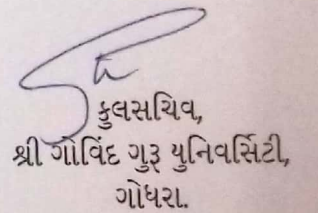 કુલસચિવ,
શ્રી ગોવિંદ ગુરૂ યુનિવર્સિટી,
ગોધરા.